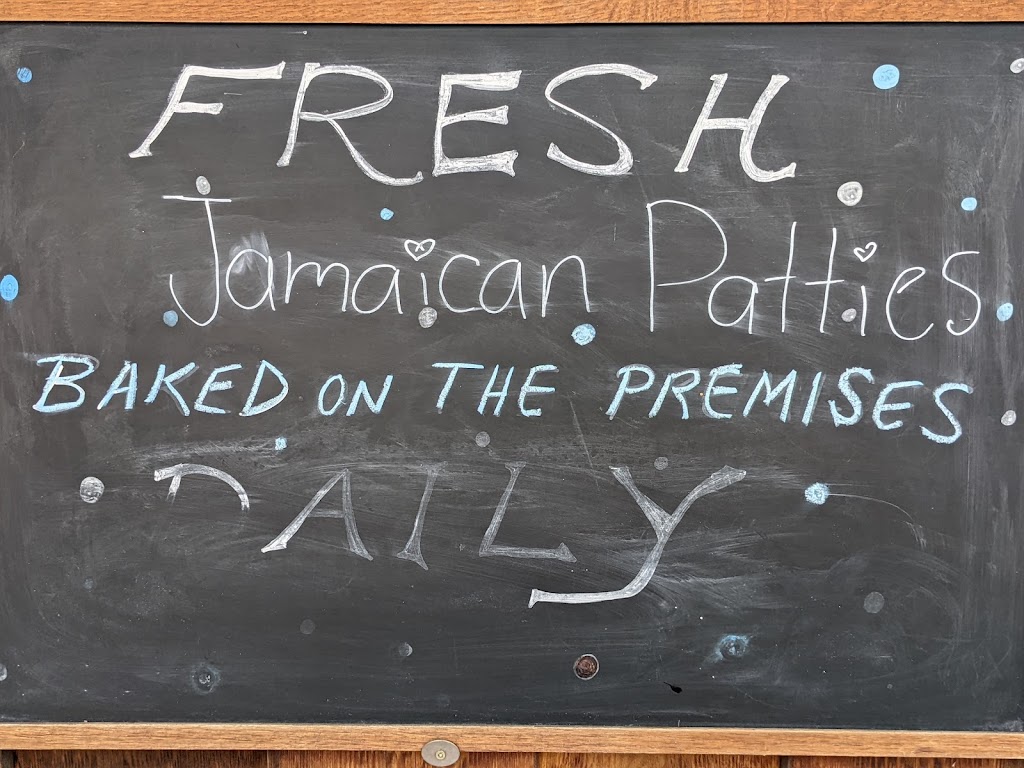 FRESH
Jamaican Patties
BAKED ON THE PREMISES
DAILY